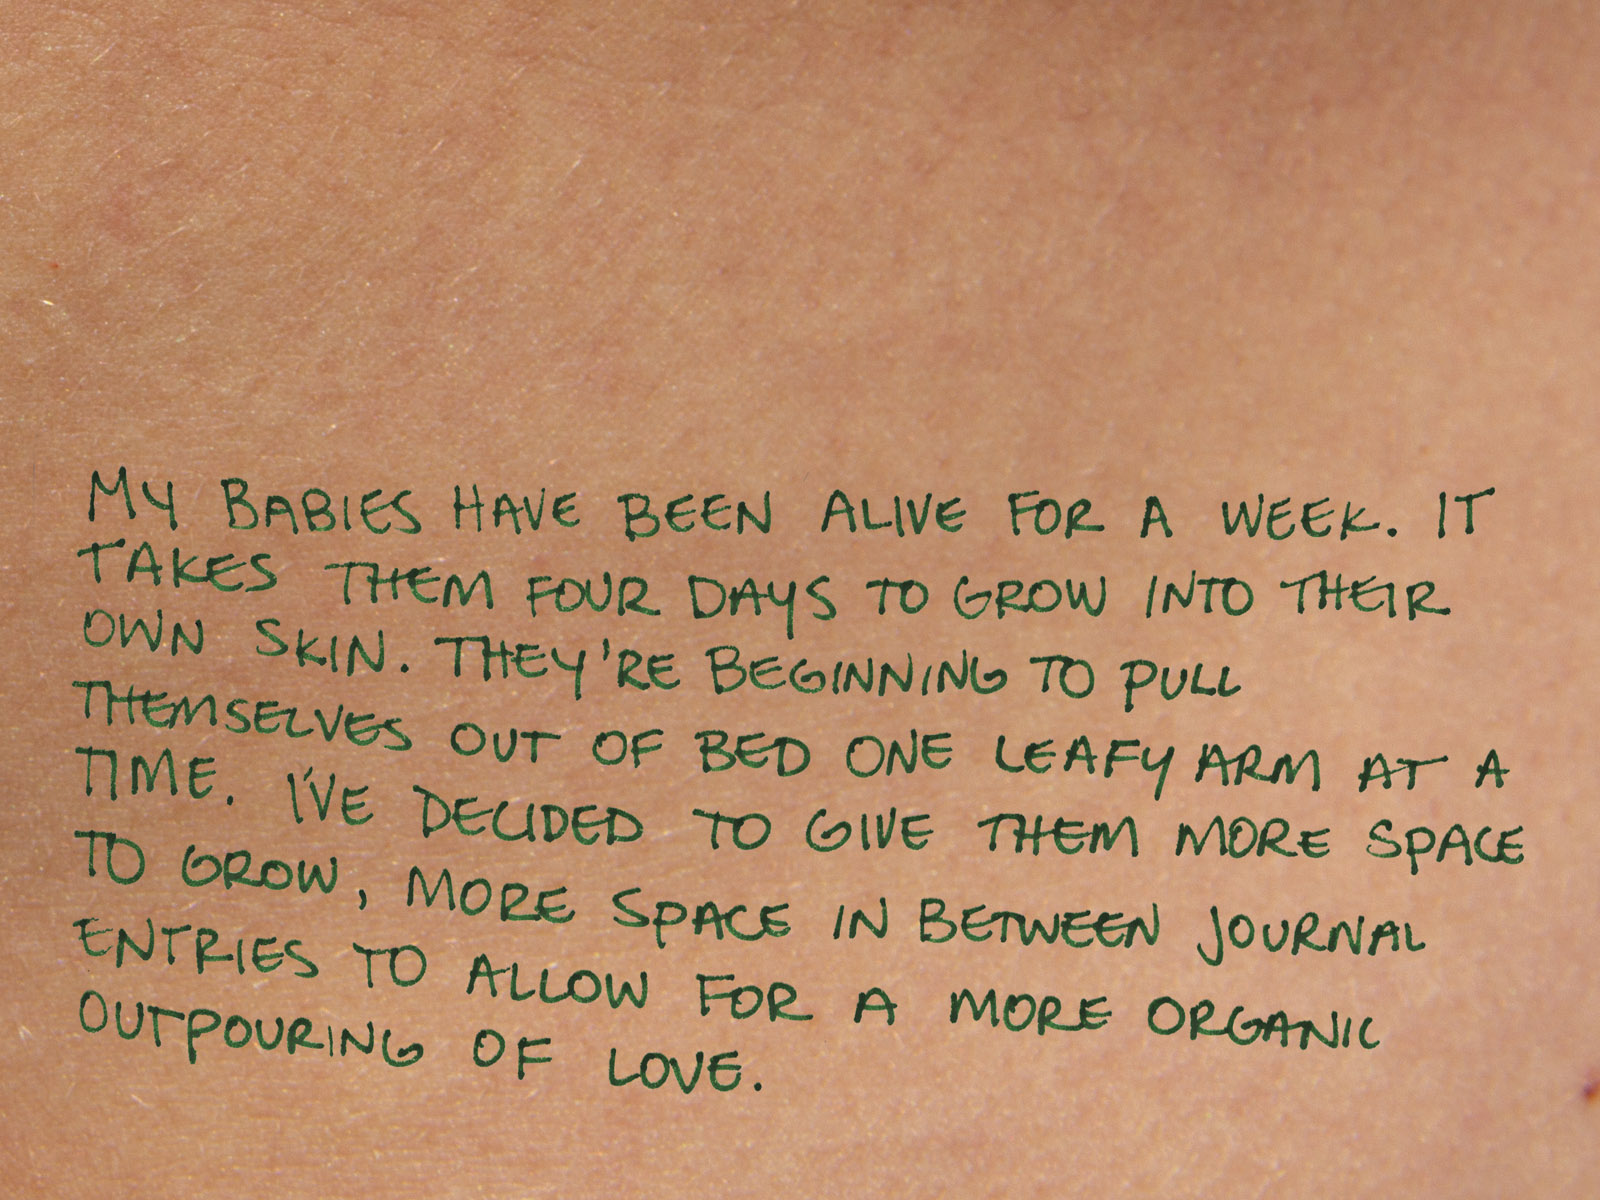 MY BABIES HAVE BEEN ALIVE FOR A WEEK. IT
TAKES THEM FOUR DAYS TO GROW INTO THEIR
OWN SKIN. THEY'RE BEGINNING TO PULL
THEMSELVES OUT OF BED ONE LEAFY ARM AT A
TIME. I'VE DECIDED TO GIVE THEM MORE SPACE
TO GROW, MORE SPACE IN BETWEEN JOURNAL
ENTRIES TO ALLOW FOR A MORE ORGANIC
OUTPOURING OF LOVE.